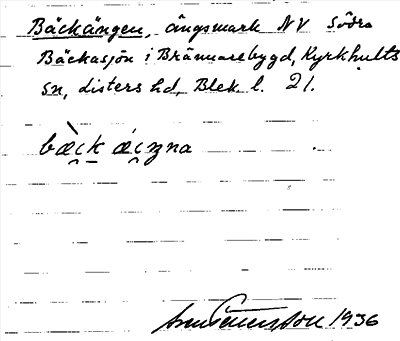 Bäckängen, ängsmark NV Södra
Bäckasjön i Brännarebygd, Kyrkhults
sn, Listers hd, Blek. l. 21.
bæ̀i̯k ǽi̯ŋna
1936